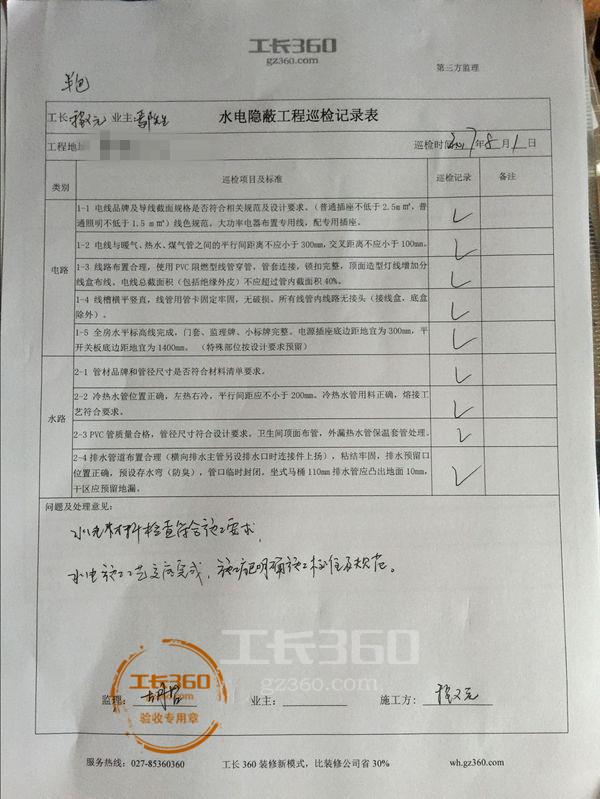 工长360
gz360.com
第三方监理
半包
工长: 业主: 水电隐蔽工程巡检记录表
工程地址 巡检时间 2017年8月1日
类别 巡检项目及标准 巡检记录 备注
电路
1-1 电线品牌及导线截面规格是否符合相关规范及设计要求。(普通插座不低于2.5m㎡,普
通照明不低于1.5m㎡)线色规范。大功率电器布置专用线,配专用插座。
1-2 电线与暖气、热水、煤气管之间的平行间距离不应小于300mm,交叉距离不应小于100mm。
1-3 线路布置合理,使用PVC阻燃型线管穿管。管套连接,锁扣完整,顶面造型灯线增加分
线盒布线。电线总截面积(包括绝缘外皮)不应超过管内截面积40%。
1-4 线槽横平竖直,线管用管卡固定牢固,无破损。所有线管内线路无接头(接线盒,底盒
除外)。
1-5 全房水平标高线完成,门套、监理牌、小标牌完整。电源插座底边距地宜为300mm,平
开关板底边距地宜为1400mm。(特殊部位按设计要求预留)
水路
2-1 管材品牌和管径尺寸是否符合材料清单要求。
2-2 冷热水管位置正确,左热右冷,平行间距应不小于200mm。冷热水管用料正确,熔接工
艺符合要求。
2-3 PVC管质量合格,管径尺寸符合设计要求。卫生间顶面布管,外漏热水管保温套管处理。
2-4 排水管道布置合理(横向排水主管另设排水口时连接件上扬),粘结牢固,排水预留口
位置正确,预设存水弯(防臭),管口临时封闭,坐式马桶110mm排水管应凸出地面10mm,
干区应预留地漏。
问题及处理意见:
水电材料检查符合施工要求,
水电施工工艺交底完成,施工班明确施工标准及规范。
工长360
gz360.com
工长360
验收专用章
监理: 业主: 施工方:
服务热线:027-85360360 工长360装修新模式,比装修公司省30% wh.gz360.com